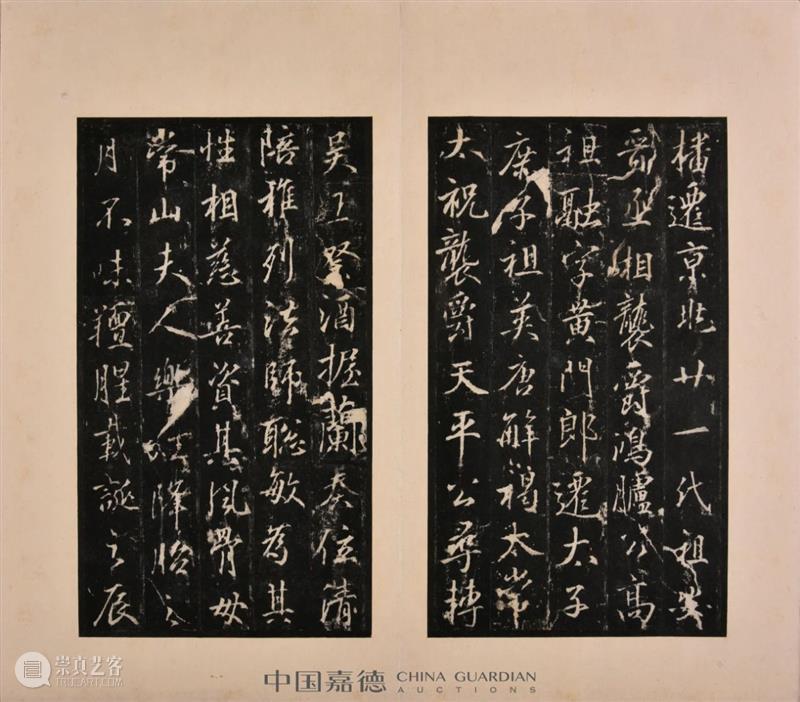 播遷京兆廿一代祖
丞相襲爵鴻臚公高
祖融字黄門郎遷太子
庶子祖英唐解褐太常
太祝襲爵天平公尋轉
吴王祭酒握蘭奏位清
陪雅列法師聡敏為其
性相慈善資其風骨母
常山夫人樂氏降胎之
月不味羶腥載誕之辰
崇真艺客
WWW.TRUEART.COM
中国嘉德 CHINA GUARDIAN
AUCTIONS